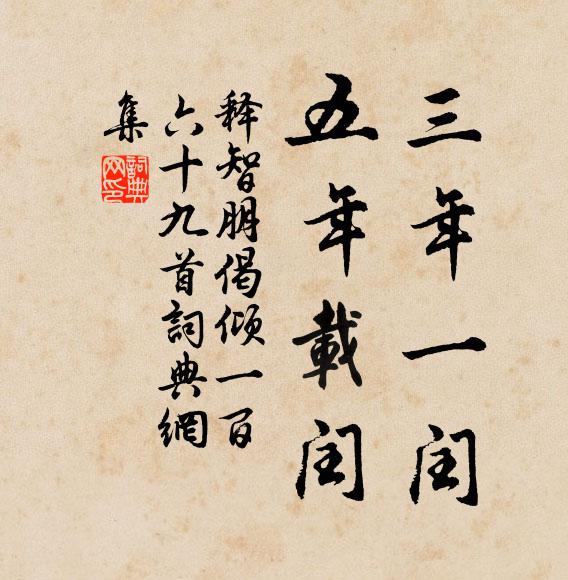 三年一闰
五年載闰
释智朋偈倾一百
六十九首詞典網
集
詞典网印